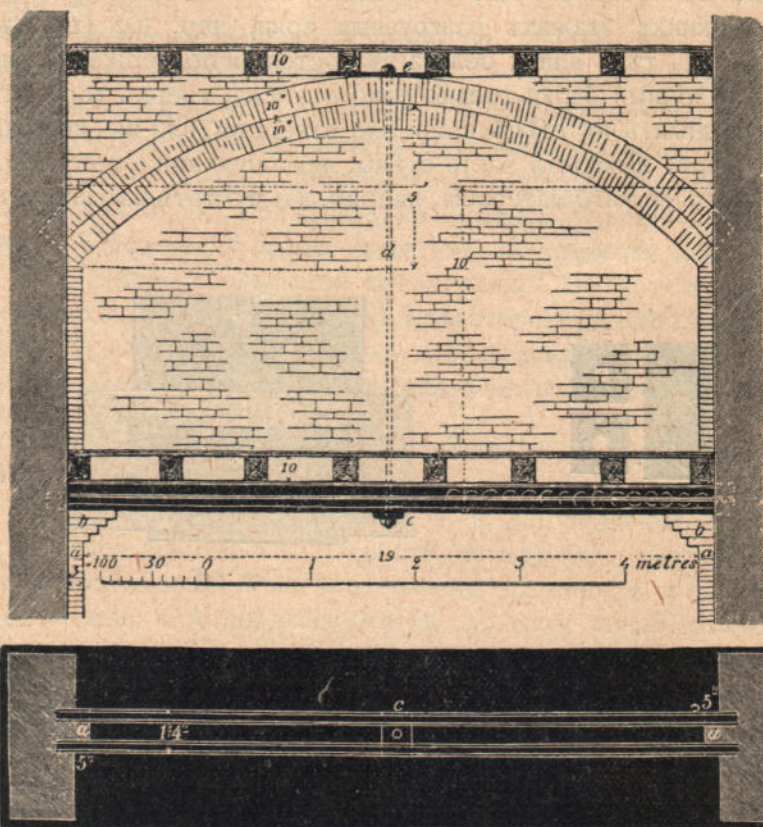 10 e
10"
10"
5
d
10'
10
b c b
a 19 a
5
100 30 0 1 2 3 4 mètres
c 5"
a 1'4" a
5"